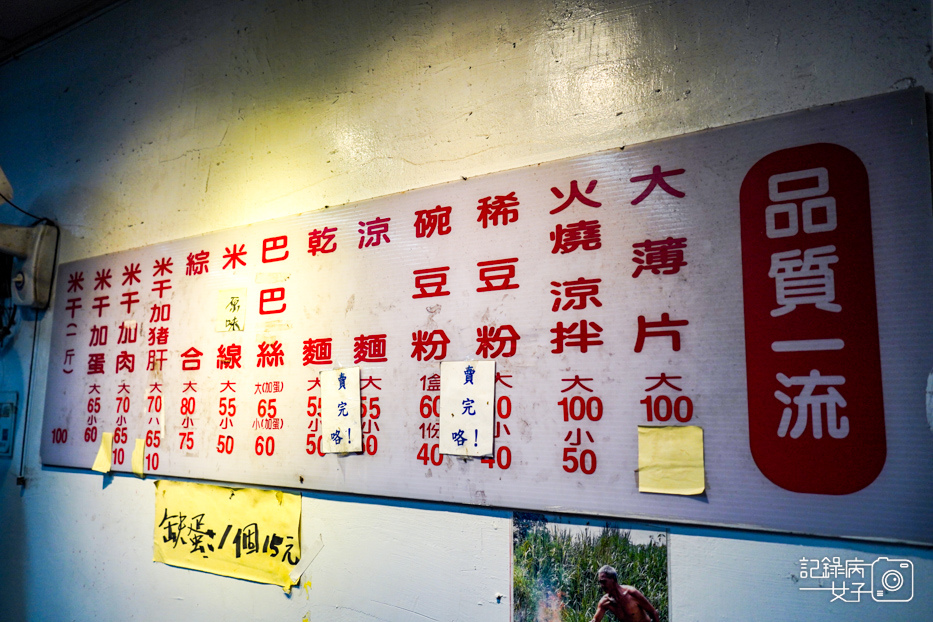 品質一流
大薄片
大
100
火燒涼拌
大
100
小
50
稀豆粉
大
小
40
賣完咯!
碗豆粉
1盒
60
1份
40
涼麵
大
55
小
50
賣完咯!
乾麵
大
55
小
50
巴巴絲
大(加蛋)
65
小(加蛋)
60
米線
原味
大
55
小
50
綜合
大
80
小
75
米干加豬肝
大
70
小
65
10
米干加肉
大
70
小
65
10
米干加蛋
大
65
小
60
米干(一斤)
100
缺蛋:1個15元
記錄病女子